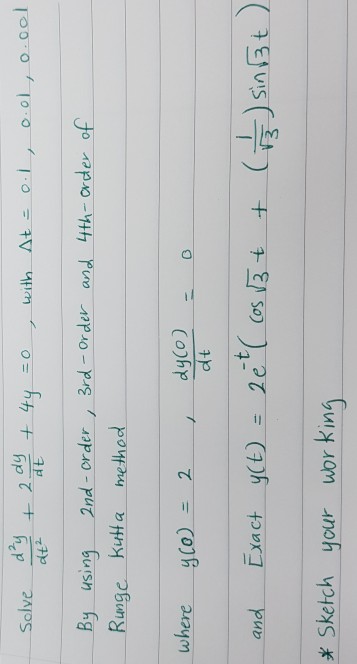 Solve d²y/dt² + 2 dy/dt + 4y = 0 , with Δt = 0.1 , 0.01 , 0.001
By using 2nd-order, 3rd-order and 4th-order of
Runge Kutta method
where y(0) = 2 , dy(0)/dt = 0
and Exact y(t) = 2e^-t ( cos √3 t + (1/√3) sin √3 t )
* Sketch your working